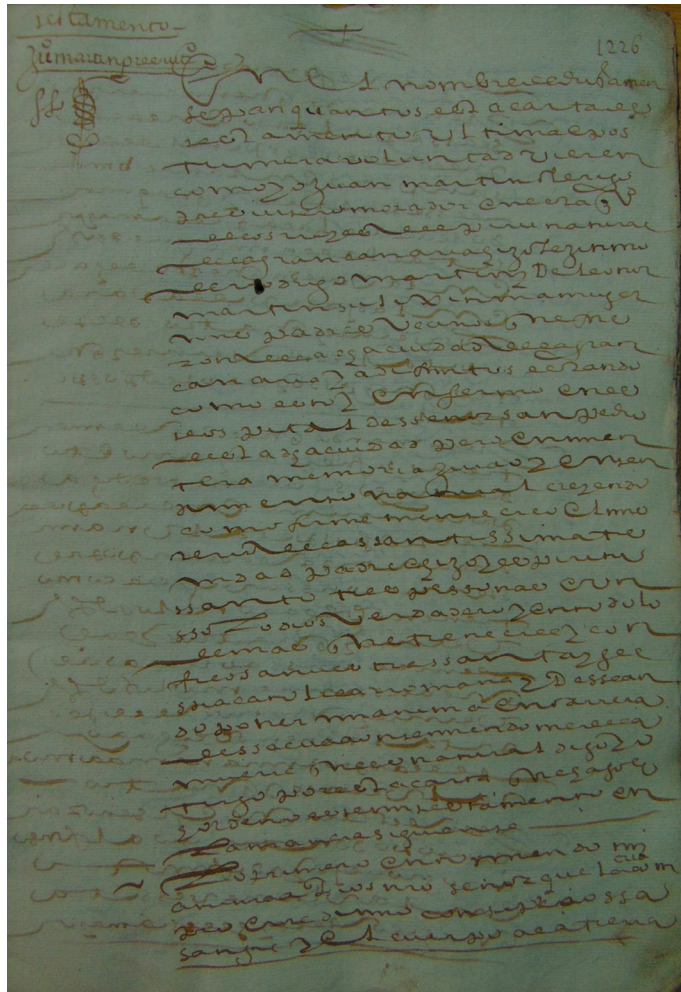 testamento
Juº martin presvitº
1226
En el nombre de dios amen
sepan quantos esta carta de
testamento y ultima e pos
trimera voluntad vieren
como yo juan martin clerigo
presvitero morador en esta
de los rreyes del piru natural
de la gran canaria hijo lexitimo
de rrodrigo martin y de leonor
martin su muger
mis padres vecinos que
son de la dha ciudad de la gran
canaria ya difuntos estando
como estoy enfermo en el
ospital de señor san pedro
desta dha ciudad pero en mi en
tera memoria juizio y enten
dimiento natural creyendo
como firmemente creo el mis
terio de la santissima tri
nidad padre e hijo y espiritu
santo tres personas e un
solo dios verdadero y en todo lo
demas que tiene cree y con
fiesa nuestra santa yglesia
catolica rromana y dessean
do poner mi anima en carrera
de salvacion temiendome de la
muerte que es natural digo yo
otorgo por esta carta que hago
y ordeno este mi testamento en
la manera siguiente
Lo primero encomiendo mi
anima a dios nro señor que la crio
e rredimio con su preciossa
sangre y el cuerpo a la tierra